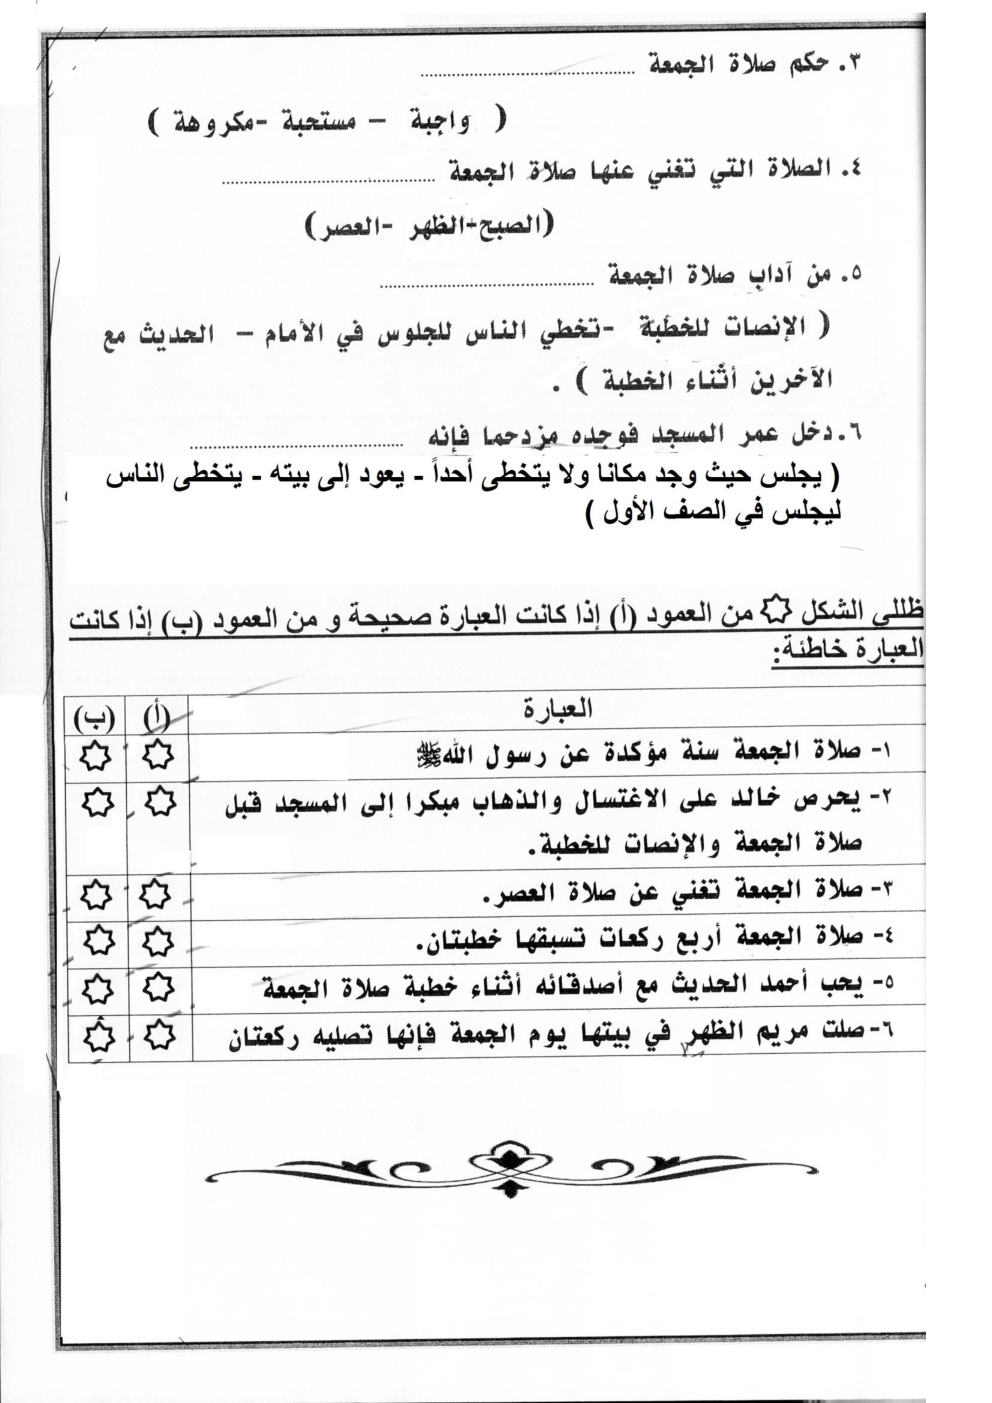 ٣. حكم صلاة الجمعة ........................................
( واجبة – مستحبة -مكروهة )
٤. الصلاة التي تغني عنها صلاة الجمعة ........................................
(الصبح-الظهر -العصر)
٥. من آداب صلاة الجمعة ........................................
( الإنصات للخطبة -تخطي الناس للجلوس في الأمام – الحديث مع
الآخرين أثناء الخطبة ) .
٦.دخل عمر المسجد فوجده مزدحما فإنه ........................................
( يجلس حيث وجد مكانا ولا يتخطى أحداً - يعود إلى بيته - يتخطى الناس
ليجلس في الصف الأول )
ظللي الشكل من العمود (أ) إذا كانت العبارة صحيحة و من العمود (ب) إذا كانت
العبارة خاطئة:
العبارة (أ) (ب)
١- صلاة الجمعة سنة مؤكدة عن رسول اللهﷺ
٢- يحرص خالد على الاغتسال والذهاب مبكرا إلى المسجد قبل
صلاة الجمعة والإنصات للخطبة.
٣- صلاة الجمعة تغني عن صلاة العصر.
٤- صلاة الجمعة أربع ركعات تسبقها خطبتان.
٥- يحب أحمد الحديث مع أصدقائه أثناء خطبة صلاة الجمعة
٦-صلت مريم الظهر في بيتها يوم الجمعة فإنها تصليه ركعتان